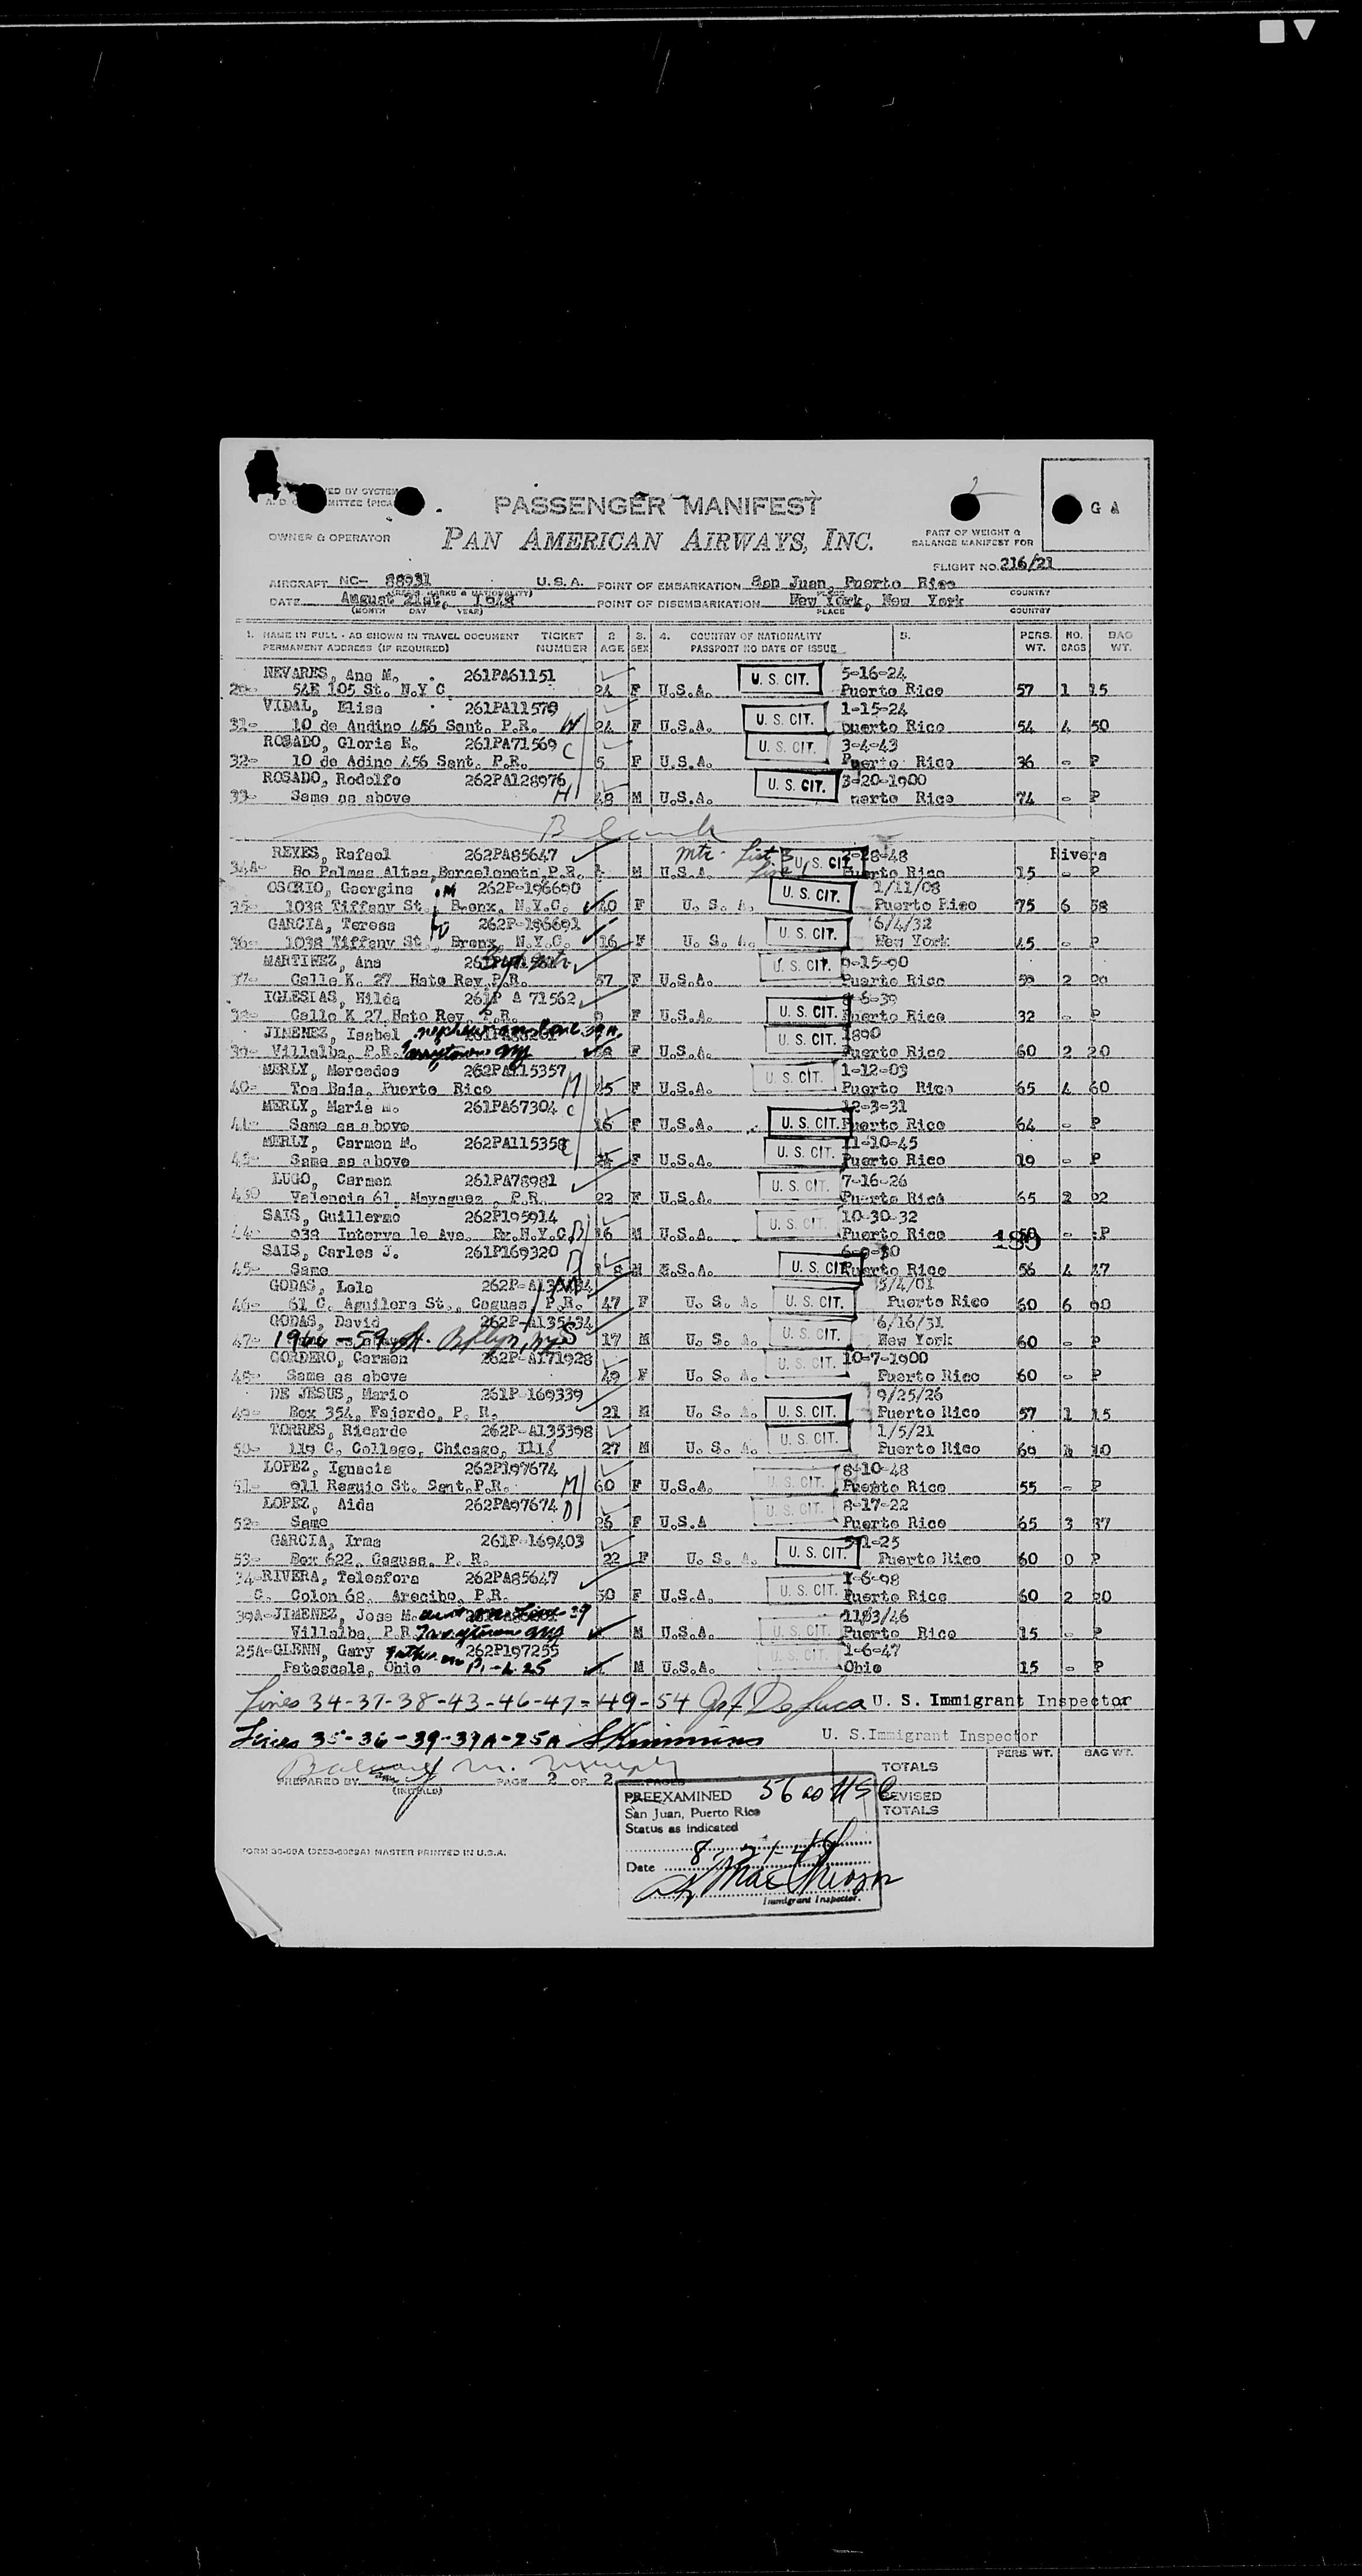 PASSENGER MANIFEST
PAN AMERICAN AIRWAYS, INC.
OWNER & OPERATOR
PART OF WEIGHT &
BALANCE MANIFEST FOR
G A
FLIGHT NO. 216/21
AIRCRAFT NC- 88931 U.S.A. POINT OF EMBARKATION San Juan, Puerto Rico
PLACE COUNTRY
DATE August 21st, 1948 POINT OF DISEMBARKATION New York, New York
(MONTH DAY YEAR) PLACE COUNTRY
1. NAME IN FULL - AS SHOWN IN TRAVEL DOCUMENT TICKET 2 3. 4. COUNTRY OF NATIONALITY 5. PERS. NO. BAG
PERMANENT ADDRESS (IF REQUIRED) NUMBER AGE SEX PASSPORT NO DATE OF ISSUE WT. BAGS WT.
NEVARES, Ana M. 261PA61151 U. S. CIT. 5-16-24
54E 105 St. N.Y C 24 F U.S.A. Puerto Rico 57 1 15
VIDAL, Elisa 261PA11579 U. S. CIT. 1-15-24
31- 10 de Andino 456 Sant. P.R. 24 F U.S.A. Puerto Rico 54 4 50
ROSADO, Gloria R. 261PA71569 C U. S. CIT. 3-4-43
32- 10 de Adino 456 Sant. P.R. 5 F U.S.A. Puerto Rico 36 - P
ROSADO, Rodolfo 262PA128976 U. S. CIT. 3-20-1900
33- Same as above H 48 M U.S.A. uerto Rico 74 - P
Blank
REYES, Rafael 262PA85647 mtr. List U. S. CIT. -28-48 Rivera
34A- Bo Palmas Altas, Barceloneta, P.R. M U.S.A. Puerto Rico 15 - P
OSORIO, Georgina M 262P-196690 U. S. CIT. 1/11/08
35- 1038 Tiffany St., Bronx, N.Y.C. 40 F U. S. A. Puerto Rico 75 6 38
GARCIA, Teresa 262P-196691 U. S. CIT. 6/4/32
36- 1038 Tiffany St., Bronx, N.Y.C. 16 F U. S. A. New York 45 - P
MARTINEZ, Ana U. S. CIT. 9-15-90
37- Calle K. 27 Hato Rey, P.R. 57 F U.S.A. Puerto Rico 59 2 20
IGLESIAS, Hilda 261P A 71562 U. S. CIT. -6-39
38- Calle K 27 Hato Rey, P.R. 9 F U.S.A. Puerto Rico 32 - P
JIMENEZ, Isabel nephew on line 39A. U. S. CIT. 1890
39- Villalba, P.R. Tarrytown NY F U.S.A. Puerto Rico 60 2 20
MERLY, Mercedes 262PA115357 U. S. CIT. 1-12-03
40- Toa Baja, Puerto Rico M 45 F U.S.A. Puerto Rico 65 4 60
MERLY, Maria M. 261PA67304 C 12-3-31
41- Same as above 16 F U.S.A. U. S. CIT. Puerto Rico 64 - P
MERLY, Carmen M. 262PA115358 C U. S. CIT. 11-10-45
42- Same as above F U.S.A. Puerto Rico 19 - P
LUGO, Carmen 261PA78981 U. S. CIT. 7-16-26
430 Valencia 61, Mayaguez, P.R. 22 F U.S.A. Puerto Rico 65 2 22
SAIS, Guillermo 262P195914 U. S. CIT. 10-30-32
44- 938 Interva le Ave. Bx.N.Y.C. 16 M U.S.A. Puerto Rico - P
189
SAIS, Carlos J. 261P169320
45- Same M U.S.A. U. S. CIT. Puerto Rico 56 4 47
GODAS, Lola 5/4/01
46- 61 C. Aguilera St., Caguas, P.R. 47 F U. S. A. U. S. CIT. Puerto Rico 60 6 90
GODAS, David 262P-A135434 U. S. CIT. 6/16/31
47- 59 St. Bklyn, NY S 17 M U. S. A. New York 60 - P
CORDERO, Carmen 262P-A171928 U. S. CIT. 10-7-1900
48- Same as above 49 F U. S. A. Puerto Rico 60 - P
DE JESUS, Mario 261P-169339 9/25/26
49- Box 354, Fajardo, P. R. 21 M U. S. A. U. S. CIT. Puerto Rico 57 1 15
TORRES, Ricardo 262P-A135398 U. S. CIT. 1/5/21
50- 119 C. College, Chicago, Ill. 27 M U. S. A. Puerto Rico 69 1 10
LOPEZ, Ignacia 262P197674 8-10-48
51- 911 Refugio St. Sant.P.R. M 60 F U.S.A. U. S. CIT. Puerto Rico 55 - P
LOPEZ, Aida 262PA97674 D U. S. CIT. 8-17-22
52- Same 26 F U.S.A Puerto Rico 65 3 37
GARCIA, Irma 261P-169403
53- Box 622, Caguas, P. R. 22 F U. S. A. U. S. CIT. Puerto Rico 60 0 P
34-RIVERA, Telesfora 262PA85647 U. S. CIT. 1-6-98
C. Colon 68, Arecibo, P.R. 50 F U.S.A. Puerto Rico 60 2 20
39A-JIMENEZ, Jose M. aunt on Line-39
Villalba, P.R. Tarrytown NY M U.S.A. U. S. CIT. Puerto Rico 15 - P
25A-GLENN, Gary Father on 262P197255 U. S. CIT. 1-6-47
Patascala, Ohio P.1-L 25 M U.S.A. Ohio 15 - P
Lines 34-37-38-43-46-47-49-54 De Luca U. S. Immigrant Inspector
Lines 35-36-39-39A-25A SKimmins U. S.Immigrant Inspector
PERS WT. BAG WT.
TOTALS
REVISED
TOTALS
PREPARED BY PAGE 2 OF 2 PAGES
(INITIALS)
PREEXAMINED 56 as USC
San Juan, Puerto Rico
Status as indicated
Date 8-21-48
Immigrant Inspector.
MASTER PRINTED IN U.S.A.